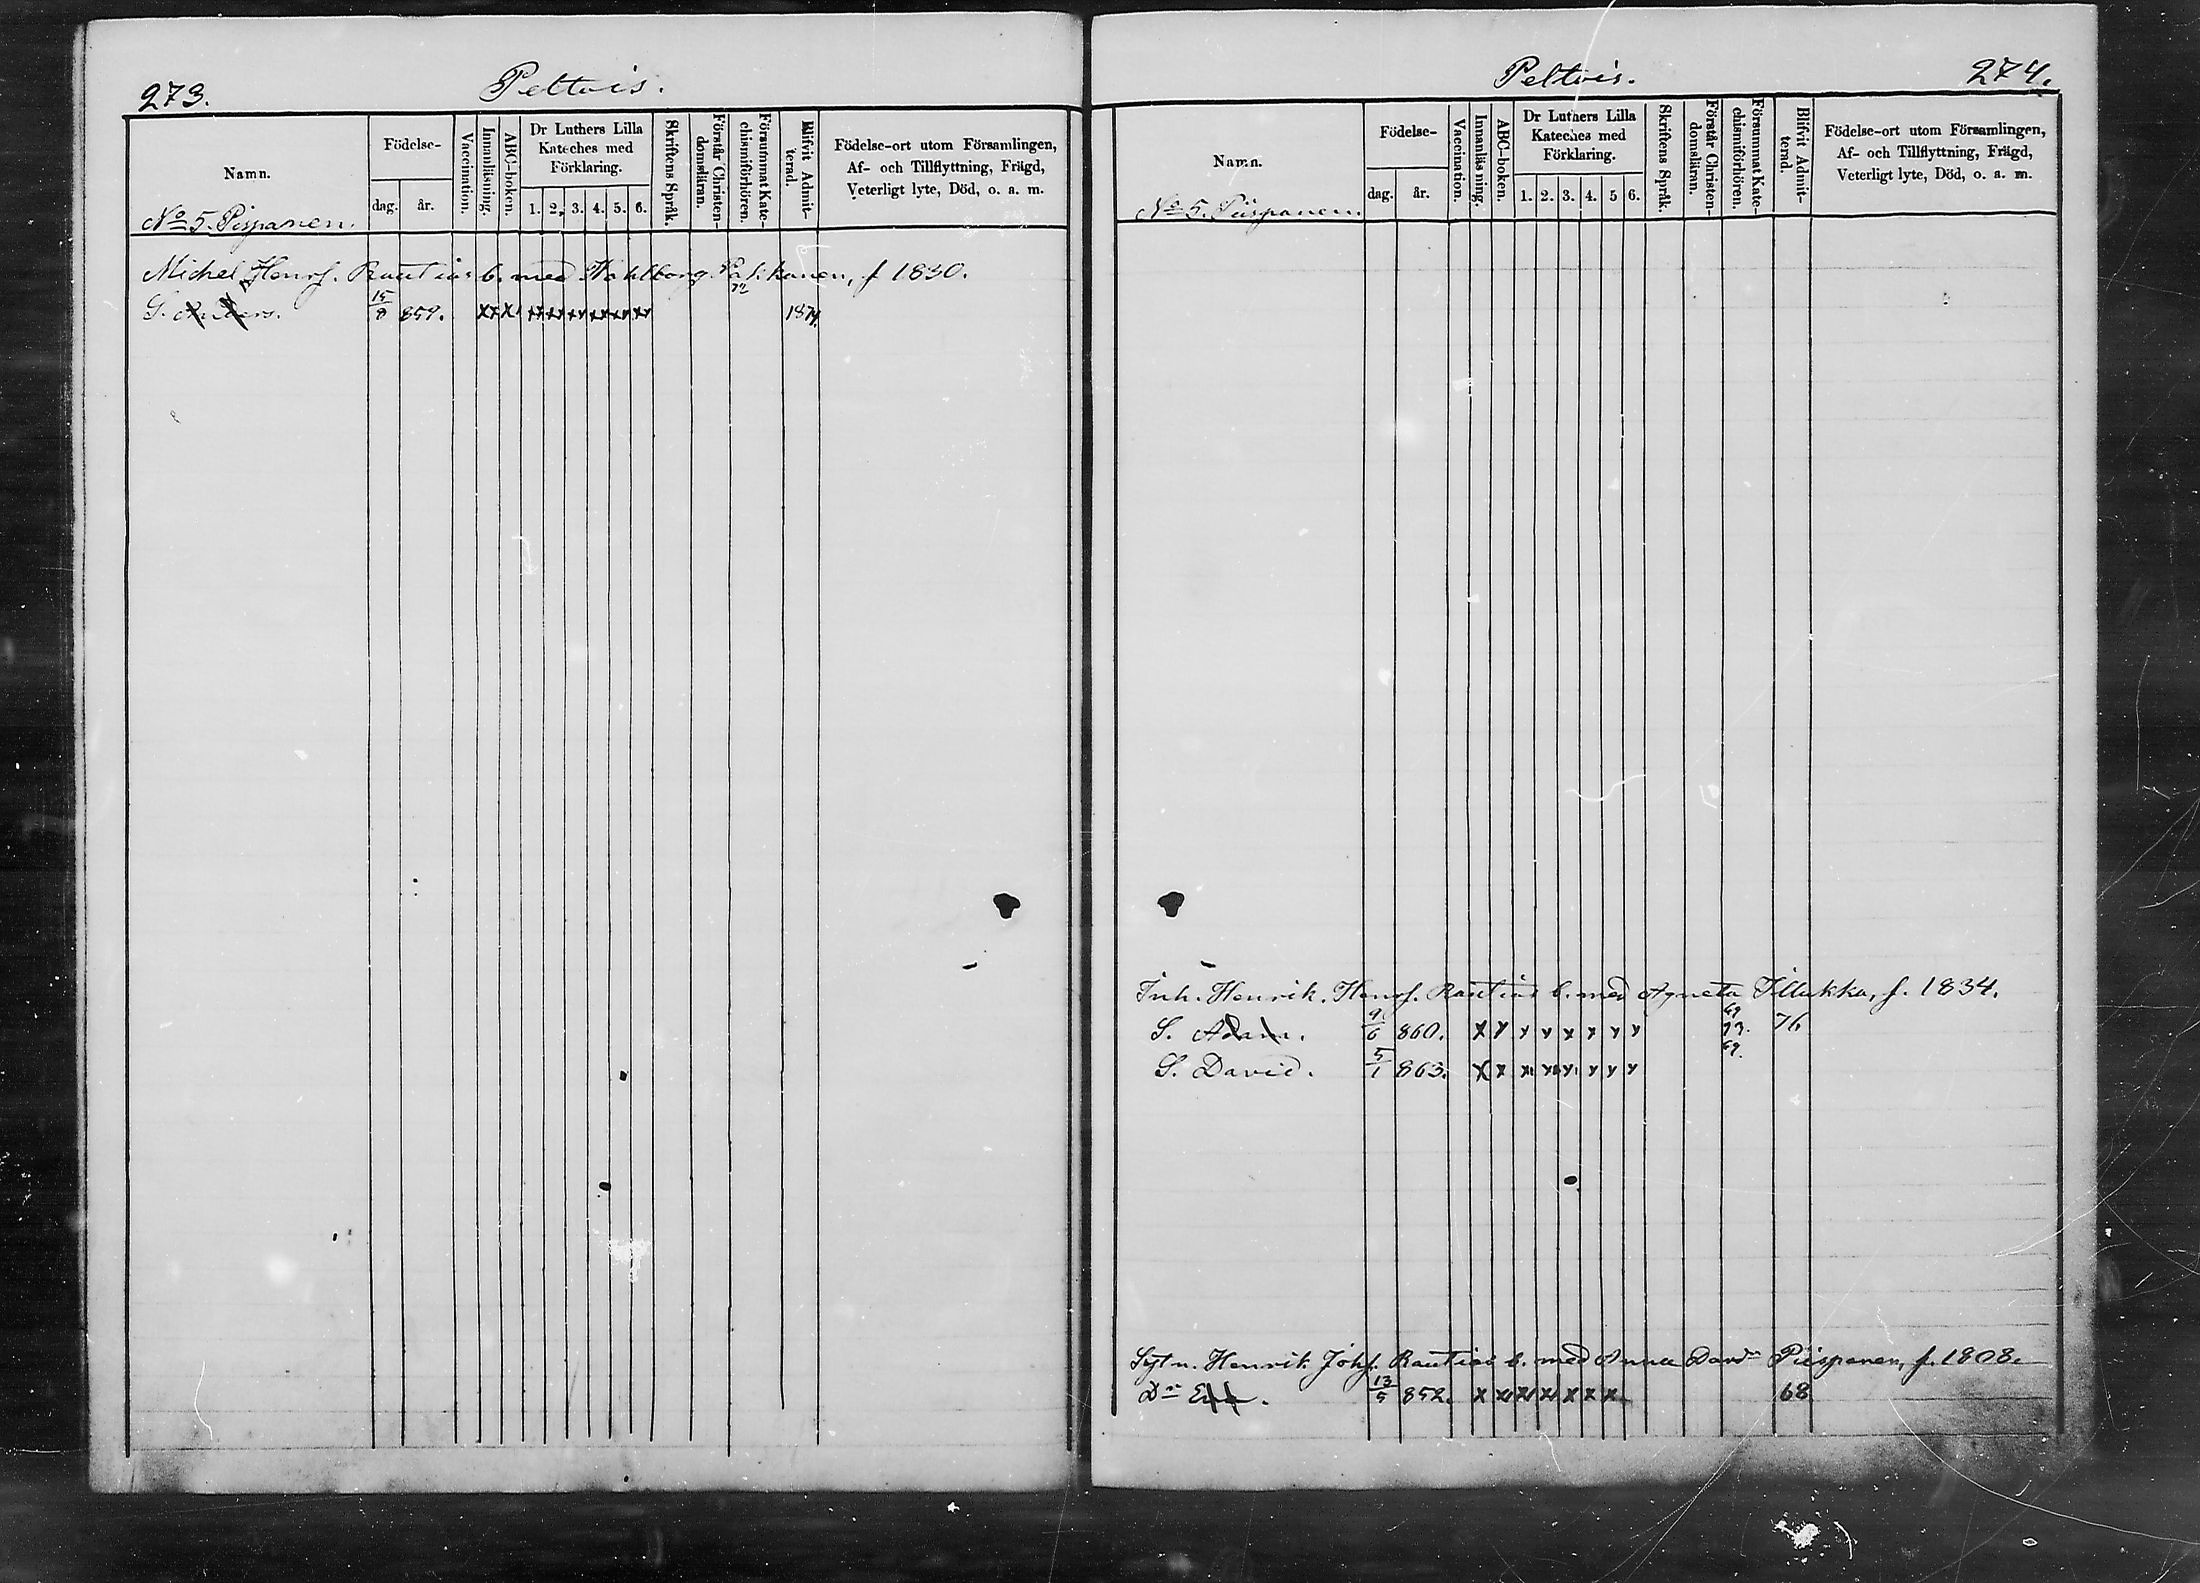 273.
Peltois.
Namn.
Födelse-
dag.
år.
Vaccination.
Innanläsning.
ABC-boken.
Dr Luthers Lilla
Kateches med
Förklaring.
1. 2. 3. 4. 5. 6.
Skriftens Språk.
Förstår Christen-
domsläran.
Försummat Kate-
chismiförhören.
Blifvit Admit-
terad.
Födelse-ort utom Församlingen,
Af- och Tillflyttning, Frägd,
Veterligt lyte, Död, o. a. m.
No 5. Pispanen.
Michel Henrs. Rautias b. med Wahlborg f 1830.
S. Anders. 15/8 859. x x x x x x x x 72 1874.
Peltois.
274.
Namn.
Födelse-
dag.
år.
Vaccination.
Innanläsning.
ABC-boken.
Dr Luthers Lilla
Kateches med
Förklaring.
1. 2. 3. 4. 5 6.
Skriftens Språk.
Förstår Christen-
domsläran.
Försummat Kate-
chismiförhören.
Blifvit Admit-
terad.
Födelse-ort utom Församlingen,
Af- och Tillflyttning, Frägd,
Veterligt lyte, Död, o. a. m.
No 5. Piispanen.
Inh. Henrik Henrs. Rautias b. med Agneta Tillukka, f. 1834.
S. Adam. 9/6 860. x x x x x x x x 69 73. 76
S. David. 5/1 863. x x x x x x x x 69.
Sytn. Henrik Johs. Rautias b. med Anna Davdr Piispanen, f. 1808.
Dr 13/5 852. x x x x x x x 68